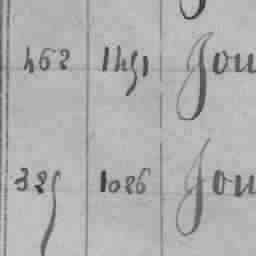 462 1491 Jou
325 1026 Jou